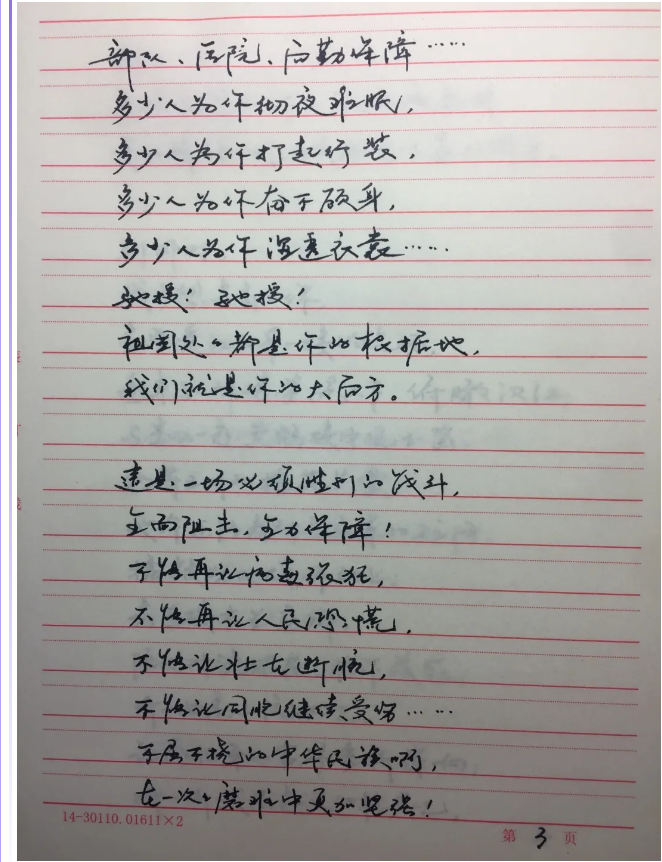 部队、医院、后勤保障……
多少人为你彻夜难眠,
多少人为你打起行装,
多少人为你奋不顾身,
多少人为你湿透衣裳……
驰援!驰援!
祖国处处都是你的根据地,
我们就是你的大后方。
这是一场必须胜利的战斗,
全面阻击,全力保障!
不能再让病毒张狂,
不能再让人民恐慌,
不能让壮士断腕,
不能让同胞继续受伤……
不屈不挠的中华民族啊,
在一次次磨难中更加坚强!
14-30110.01611×2
第 3 页